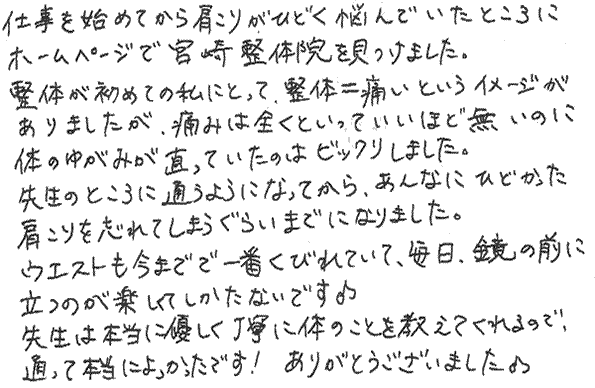 仕事を始めてから肩こりがひどく悩んでいたところに
ホームページで宮崎整体院を見つけました。
整体が初めての私にとって、整体＝痛いというイメージが
ありましたが、痛みは全くといっていいほど無いのに
体のゆがみが直っていたのはビックリしました。
先生のところに通うようになってから、あんなにひどかった
肩こりを忘れてしまうぐらいまでになりました。
ウエストも今までで一番くびれていて、毎日、鏡の前に
立つのが楽しくてしかたないです♪
先生は本当に優しく丁寧に体のことを教えてくれるので、
通って本当によかったです！ ありがとうございました♪